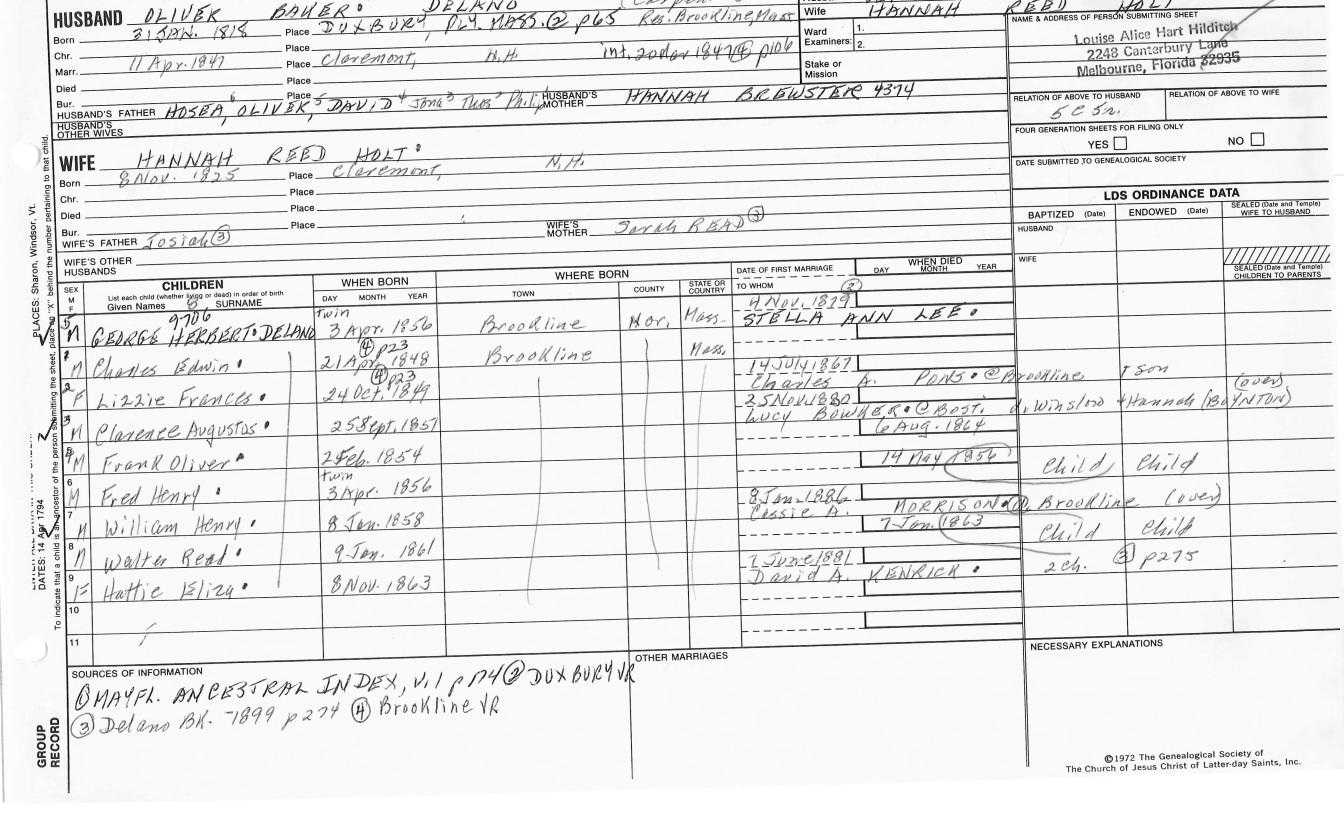 HUSBAND OLIVER BAUER. DELANO
Born 31 JAN. 1818 Place DUXBURY, PLY. MASS. ② p65 Res. Brookline, Mass
Chr. Place
Marr. 11 Apr. 1847 Place Claremont, N.H. int. 20 Mar 1847 ④ p106
Died Place
Bur. Place
HUSBAND'S FATHER HOSEA⁶, OLIVER⁵, DAVID⁴ Jona³ Thos² Philip HUSBAND'S MOTHER HANNAH BREWSTER 4374
HUSBAND'S OTHER WIVES
Wife HANNAH REED HOLT
Ward
Examiners:
1.
2.
Stake or
Mission
NAME & ADDRESS OF PERSON SUBMITTING SHEET
Louise Alice Hart Hilditch
2248 Canterbury Lane
Melbourne, Florida 32935
RELATION OF ABOVE TO HUSBAND
5c 5r.
RELATION OF ABOVE TO WIFE
FOUR GENERATION SHEETS FOR FILING ONLY
YES NO
DATE SUBMITTED TO GENEALOGICAL SOCIETY
WIFE HANNAH REED HOLT.
Born 8 Nov. 1825 Place Claremont, N.H.
Chr. Place
Died Place
Bur. Place
WIFE'S FATHER Josiah ③ WIFE'S MOTHER Sarah READ ③
WIFE'S OTHER HUSBANDS
LDS ORDINANCE DATA
BAPTIZED (Date) ENDOWED (Date) SEALED (Date and Temple) WIFE TO HUSBAND
HUSBAND
WIFE
SEALED (Date and Temple) CHILDREN TO PARENTS
SEX M F
CHILDREN
List each child (whether living or dead) in order of birth
Given Names SURNAME
WHEN BORN
DAY MONTH YEAR
WHERE BORN
TOWN COUNTY STATE OR COUNTRY
DATE OF FIRST MARRIAGE
TO WHOM
WHEN DIED
DAY MONTH YEAR
5 M 9706 GEORGE HERBERT. DELANO twin 3 Apr. 1856 Brookline Nor. Mass. 4 Nov. 1879 ② STELLA ANN LEE.
1 M Charles Edwin. ④ p23 21 Apr. 1848 Brookline Mass.
2 F Lizzie Frances. ④ p23 24 Oct. 1849 14 July 1867 Charles A. PONS. @ Brookline 1 son (over)
3 M Clarence Augustus. 25 Sept. 1851 25 Nov 1880 LUCY BOWKER. @ Bost. d. Winslow + Hannah (BOYNTON)
M Frank Oliver. 2 Feb. 1854 6 Aug. 1864
6 M Fred Henry. twin 3 Apr. 1856 14 May 1856 Child Child
7 M William Henry. 8 Jan. 1858 8 Jan. 1886 Cassie A. MORRISON. @ Brookline (over)
8 M Walter Read. 9 Jan. 1861 7 Jan. 1863 Child Child
9 F Hattie Eliza. 8 Nov. 1863 7 June 1881 David A. KENRICK. 2 ch. ③ p275
10
11
SOURCES OF INFORMATION
① MAYFL. ANCESTRAL INDEX, v.1 p 174 ② DUXBURY VR
③ Delano BK. 1899 p 274 ④ Brookline VR
OTHER MARRIAGES
NECESSARY EXPLANATIONS
©1972 The Genealogical Society of
The Church of Jesus Christ of Latter-day Saints, Inc.
PLACES: Sharon, Windsor, Vt.
DATES: 14 Apr 1794
To indicate that a child is an ancestor of the person submitting the sheet, place an "X" behind the number pertaining to that child.
GROUP
RECORD